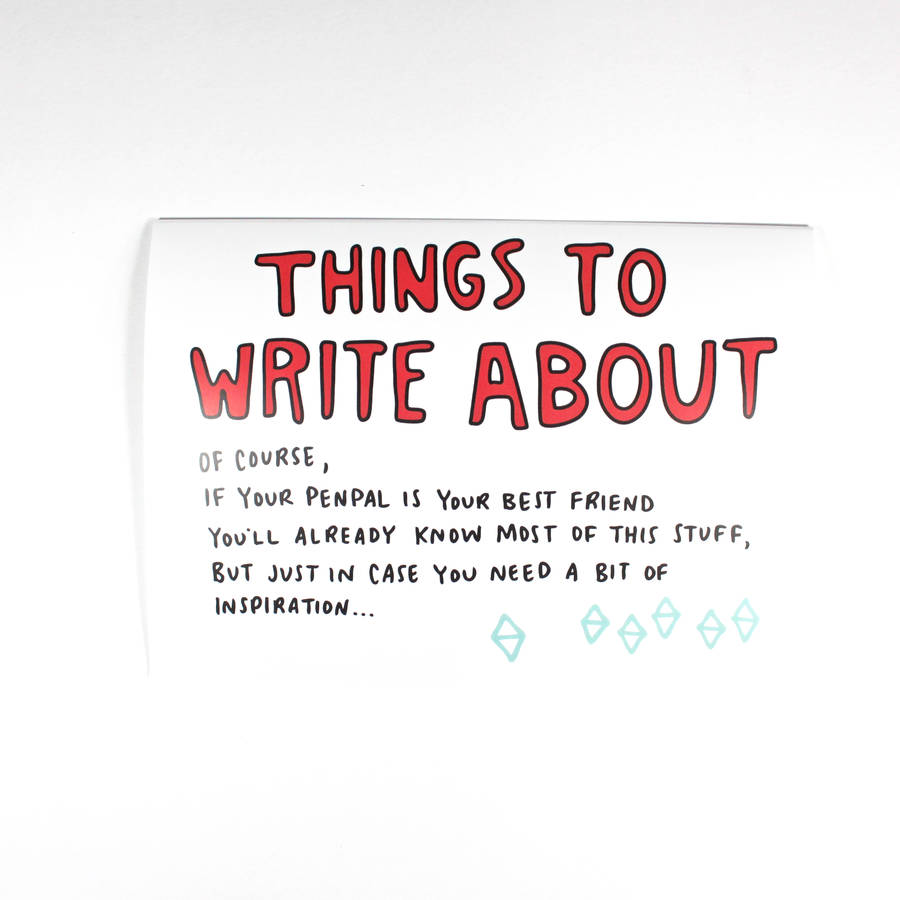 THINGS TO
WRITE ABOUT
OF COURSE,
IF YOUR PENPAL IS YOUR BEST FRIEND
YOU'LL ALREADY KNOW MOST OF THIS STUFF,
BUT JUST IN CASE YOU NEED A BIT OF
INSPIRATION...